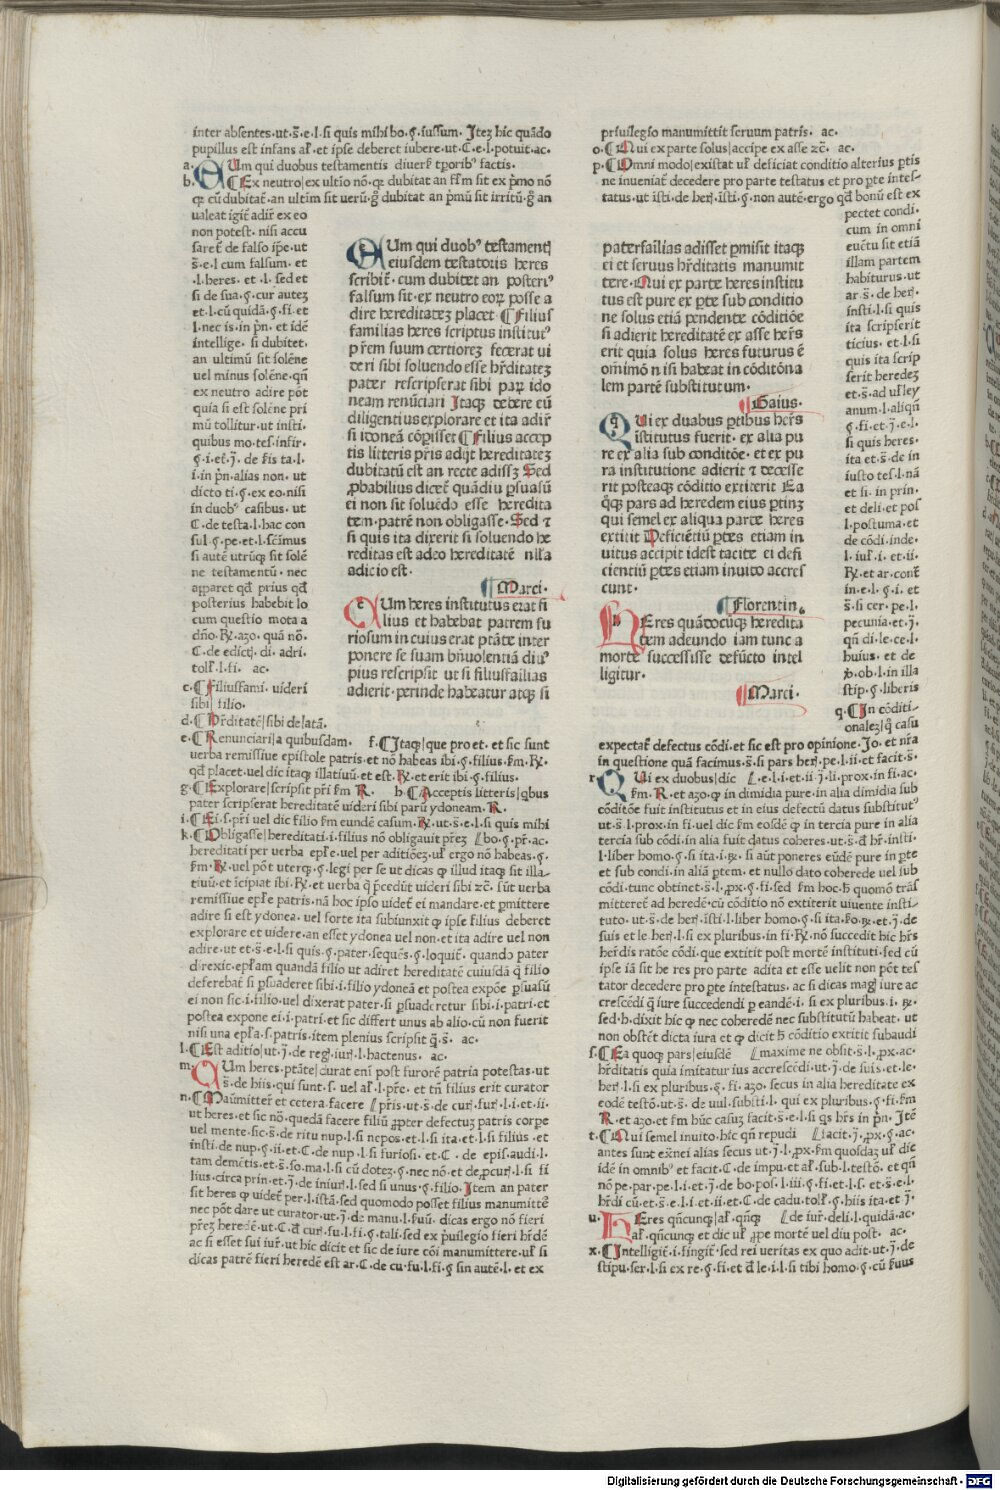 inter absentes·ut·s̄·e·l·si quis mihi bo·ꝯ·iussum· Itez hic quādo
pupillus est infans al̄·et ipse deberet iubere·ut·C·e·l·potuit·ac·
a· Um qui duobus testamentis diuers̄ tꝑorib᷒ factis·
b· ¶Ex neutro|ex ultīo nō·qꝛ dubitat an
qꝛ cū dubitat̄·an ultim̄ sit uerū·
ualeat igit̄ adir̄ ex eo
non potest· nisi accu
saret̄ de falso ip̄e·ut
s̄·e·l cum falsum· et
·l·heres· et ·l· sed et
si de sua·ꝯ·cur autez
et·l·cū quidā·ꝯ·fi·et
l·nec is·in pn̄· et idē
intellige· si dubitet·
an ultimū sit solēne
uel minus solēne·qn̄
ex neutro adire pōt
quia si est solēne pri
mū tollitur·ut insti·
quibus mo·tes·infir·
in duob᷒ casibus· ut
C·de testa·l·hac con
sul·ꝯ·pe·et·l·scīmus
si autē utrūqꝫ sit solē
ne testamentū· nec
apparet qd̄ prius qd̄
posterius habebit lo
cum questio mota a
C·de edicti· di· adri·
toll̄·l·fi· ac·
c·¶Filiusfami· uideri
sibi filio·
d·¶Hr̄ditatē|sibi delatā·
Um qui duob᷒ testamentꝭ
eiusdem testatoris heres
scribit̄· cum dubitet an posteri᷒
falsum sit·ex neutro eoꝝ posse a
dire hereditatez placet·¶Filius
familias heres scriptus institut᷒
pr̄em suum certiorez fecerat ui
deri sibi soluendo esse hr̄ditatez
pater rescripserat sibi paꝝ ido
neam renūciari Itaqꝫ debere eū
diligentius explorare et ita adir̄
si idoneā cōꝑisset ¶Filius accep
tis litteris pr̄is adijt hereditatez
dubitatū est an recte adissꝫ Sed
ꝓbabilius dicet̄ quādiu ꝑsuasū
ei non sit soluēdo esse heredita
tem·patrē non obligasse·Sed ⁊
si quis ita dixerit si soluendo he
reditas est adeo hereditatē nlla
adicio est·
¶Marci·
Um heres institutus erat fi
lius et habebat patrem fu
riosum in cuius erat ptāte inter
ponere se suam bn̄uolentiā diu᷒
pius rescripsit ut si filiusfailias
adierit·perinde habeatur atqꝫ si
e·¶Renunciari|a quibusdam· f·¶Itaqꝫ|que pro et· et sic sunt
verba remissiue epistole patris·et nō habeas ibi·ꝯ·filius·
qd̄ placet·uel dic itaqꝫ illatiuū·et est· et erit ibi·ꝯ·filius·
g·¶Explorare|scripsit pr̄i h·¶Acceptis litteris|qbus
pater scripserat hereditatē uideri sibi parū ydoneam·R·
i·¶Ei·s·pr̄i uel dic filio eundē casum· ut·s̄·e·l·si quis mihi
k·¶Obligasse|hereditati·i·filius nō obligauit pr̄ez
hereditati per uerba ep̄l̄e·uel per aditiōez· ergo nō habeas·ꝯ·
uel pōt uterqꝫ·ꝯ·legi per se ut dicas ꝙ illud itaqꝫ sit illa-
remissiue ep̄l̄e patris·nā hoc ipso uidet̄ ei mandare·et ꝑmittere
adire si est ydonea· uel forte ita subiunxit ꝙ ipse filius deberet
explorare et uidere·an esset ydonea uel non·et ita adire uel non
adire·ut et·s̄·e·l·si quis·ꝯ·pater·sequēs·ꝯ·loquit̄·quando pater
direxit·epl̄am quandā filio ut adiret hereditatē cuiusdā ꝙ filio
deferebat̄ si ꝑsuaderet sibi·i·filio ydoneā et postea expōe ꝑsuasū
ei non sic·i·filio·uel dixerat pater·si ꝑsuaderetur sibi·i·patri·et
postea expone ei·i·patri·et sic differt unus ab alio·cū non fuerit
nisi una epl̄a·s·patris·item plenius scripsit ·s̄· ac·
l·¶Est aditio|ut·j̄·de regl̄·iur̄·l·hactenus· ac·
m· Um heres·ptāte|durat eni post furorē patria potestas·ut
s̄·de hiis·qui sunt·s·uel al̄·l·pr̄e· et tn̄ filius erit curator
n·¶Maūmitter̄ et cetera facere
ut heres·et sic nō·quedā facere filiū ꝓpter defectuz patris corpe
uel mente·sic·s̄·de ritu nup·l·si nepos·et·l·si ita·et·l·si filius·et
insti·de nup·ꝯ·ii·et·C·de nup·l·si furiosi·et·C· de epis·audi·l·
tam demētis·et·s̄·so·ma·l·si cū dotez·ꝯ·nec nō·et de·ꝓcur̄·l·si fi
lius·circa prin·et·j̄·de iniur̄·l·sed si unus·ꝯ·filio·Item an pater
sit heres ꝙ uidet̄ per·l·istā·sed quomodo posset filius manumittē
nec pōt dare ut curator·ut·j̄·de manu·l· dicas ergo nō fieri
pr̄ez heredē·ut·C·d̄ cur̄·fu·l·fi·ꝯ·tali·sed ex pꝛiuilegio fieri hr̄dē
ac si esset sui iur̄·ut hic dicit et sic de iure cōi manumittere·ul̄ si
dicas patrē fieri heredē est ar·C·de cu·fu·l·fi·ꝯ sin autē·l·et ex
priuilegio manumittit seruum patris· ac·
o·¶Qui ex parte solus|accipe ex asse ⁊c̄· ac·
p·¶Omni modo|existat ul̄ deficiat conditio alterius ꝑtis
ne inueniat̄ decedere pro parte testatus et pro ꝑte intes-
tatus·ut īsti·de her̄·īsti·ꝯ·non autē·ergo qd̄ bonū est ex
pectet condi·
cum in omni
euētu sit etiā
illam partem
habiturus·ut
ar·s̄·de her̄·
insti·l·si quis
ita scripserit
ticius·et·l·si
quis ita scrip
serit heredez
et·s̄·ad ul̄ley
anum·l·aliqn̄
ꝯ·fi·et·j̄·e·l·
si quis heres·
ita et·s̄·de in
iusto tes·l·nā
et si·in prin·
et deli·et pos
l·postuma·et
de cōdi·inde·
l·iul̄·i·et·ii·
in·e·l·ꝯ·i·et
s̄·si cer·pe·l·
pecunia·et·j̄·
qn̄ di·le·ce·l·
huius·et de
ꝟ·ob·l·in illa
stip·ꝯ·liberis
q·¶In cōditi-
onalez|q̄ casu
patersailias adisset ꝑmisit itaqꝫ
ei et seruus hr̄ditatis manumit
tere·Qui ex parte heres institu
tus est pure ex ꝑte sub conditio
ne solus etiā pendente cōditiōe
si adierit hereditatē ex asse her̄s
erit quia solus heres futurus ē
om̄imō n isi habeat in cōditōna
lem partē substitutum·
¶Gaius·
Ui ex duabus ꝑtibus her̄s
īstitutus fuerit· ex alia pu
re ex alia sub conditōe·et ex pu
ra institutione adierit ⁊ decesse
rit posteaqꝫ cōditio extiterit Ea
q̄qꝫ pars ad heredem eius ꝑtinꝫ
qui semel ex aliqua parte heres
extitit Deficiētiū ꝑtes etiam in
uitus accipit idest tacite ei defi
cientiū ꝑtes etiam inuito accres
cunt·
¶Florentin·
Eres quādocūqꝫ heredita
tem adeundo iam tunc a
morte successisse defūcto intel
ligitur·
¶Marci·
expectat̄ defectus cōdi·et sic est pro opinione·Jo·et nr̄a
in questione quā facimus·s̄·si pars her̄·pe·l·ii·et facit·s̄·
r· Ui ex duobus|dic ·e·l·i·et·ii·j̄·li·prox·in fi·ac·
R·et azo·ꝙ in dimidia pure·in alia dimidia sub
cōditōe fuit institutus et in eius defectū datus substitut᷒
ut·s̄·l·prox·in fi·uel dic eosdē ꝙ in tercia pure in alia
tercia sub cōdi·in alia fuit datus coheres·ut·s̄·d̄ hr̄·insti·
l·liber homo·ꝯ·si ita·i· si aūt poneres eūdē pure in ꝑte
et sub condi·in aliā ꝑtem·et nullo dato coherede uel sub
cōdi·tunc obtinet·s̄·l·ꝓx·ꝯ·fi·sed hoc·
mitteret̄ ad heredē·cū cōditio nō extiterit uiuente insti-
tuto·ut·s̄·de her̄·īsti·l·liber homo·ꝯ·si ita· et·j̄·de
suis et le·her̄·l·si ex pluribus·in fi· nō succedit hic hr̄s
her̄dis ratōe cōdi·que extitit post mortē instituti·sed cū
ipse iā sit he res pro parte adita et esse uelit non pōt tes
tator decedere pro ꝑte intestatus·ac si dicas magl̄ iure ac
crescēdi q̄ iure succedendi ꝑ eandē·i·si ex pluribus·i·
sed·h·dixit hic ꝙ nec coheredē nec substitutū habeat·ut
non obstēt dicta iura et ꝙ dicit h cōditio extitit subaudi
s·¶Ea quoqꝫ pars|eiusdē maxime ne obsit·s̄·l·ꝓx·ac·
hr̄ditatis quia imitatur ius accrescēdi·ut·j̄·de suis·et·le·
her̄·l·si ex pluribus·ꝯ·fi·azo·secus in alia hereditate ex
eodē testō·ut·s̄·de uul·substi·l·qui ex pluribus·ꝯ·fi
R·et azo·et hūc casuz facit·s̄·e·l·si qs hr̄s in pn̄· Itē
t·¶Qui semel inuito·hic qn̄ repudi facit·j̄·ꝓx·ꝯ·ac·
antes sunt ex̄nei alias secus ut·j̄·l·ꝓx· quosdaz ul̄ dic
idē in omnib᷒ et facit·C·de impu·et al̄·sub·l·testō·et qn̄
nō pe·par·pe·l·i·et·j̄·de bo·pos·l·iii·ꝯ·fi·et·l·s·et·s̄·e·l·
hr̄di cū·et·s̄·e·l·i·et·ii·et·C·de cadu·toll̄·ꝯ·hiis ita·et·j̄·
u· Eres qn̄cunqꝫ|al̄·qn̄qꝫ de iur̄·deli·l·quidā·ac·
al̄·qn̄cunqꝫ et dic ul̄ ꝓpe mortē uel diu post· ac·
x·¶Intelligit̄·i·fingit̄·sed rei ueritas ex quo adit·ut·j̄·de
stipu·ser·l·si ex re·ꝯ·fi·et d̄ le·i·l·si tibi homo·ꝯ·cū
Digitalisierung gefördert durch die Deutsche Forschungsgemeinschaft - DFG